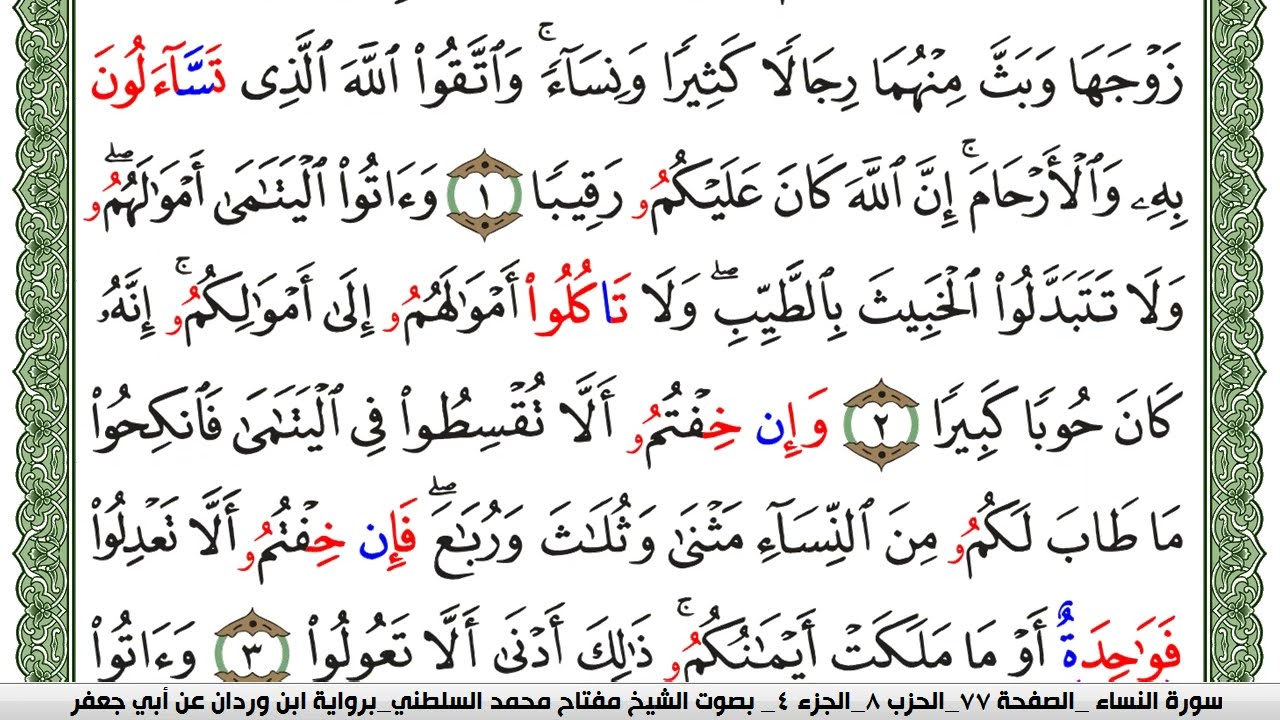 زَوْجَهَا وَبَثَّ مِنْهُمَا رِجَالًا كَثِيرًا وَنِسَآءًۚ وَٱتَّقُوا۟ ٱللَّهَ ٱلَّذِى تَسَّآءَلُونَ
بِهِۦ وَٱلْأَرْحَامَۚ إِنَّ ٱللَّهَ كَانَ عَلَيْكُمُو رَقِيبًا ١ وَءَاتُوا۟ ٱلْيَتَـٰمَىٰ أَمْوَٰلَهُمُوۖ
وَلَا تَتَبَدَّلُوا۟ ٱلْخَبِيثَ بِٱلطَّيِّبِۖ وَلَا تَاكُلُوا۟ أَمْوَٰلَهُمُو إِلَىٰ أَمْوَٰلِكُمُوۚ إِنَّهُۥ
كَانَ حُوبًا كَبِيرًا ٢ وَإِن خِفْتُمُو أَلَّا تُقْسِطُوا۟ فِى ٱلْيَتَـٰمَىٰ فَٱنكِحُوا۟
مَا طَابَ لَكُمُو مِنَ ٱلنِّسَآءِ مَثْنَىٰ وَثُلَـٰثَ وَرُبَـٰعَۖ فَإِن خِفْتُمُو أَلَّا تَعْدِلُوا۟
فَوَٰحِدَةٌ أَوْ مَا مَلَكَتْ أَيْمَـٰنُكُمُوۚ ذَٰلِكَ أَدْنَىٰ أَلَّا تَعُولُوا۟ ٣ وَءَاتُوا۟
سورة النساء _الصفحة ٧٧_الحزب ٨_الجزء ٤_ بصوت الشيخ مفتاح محمد السلطني_برواية ابن وردان عن أبي جعفر